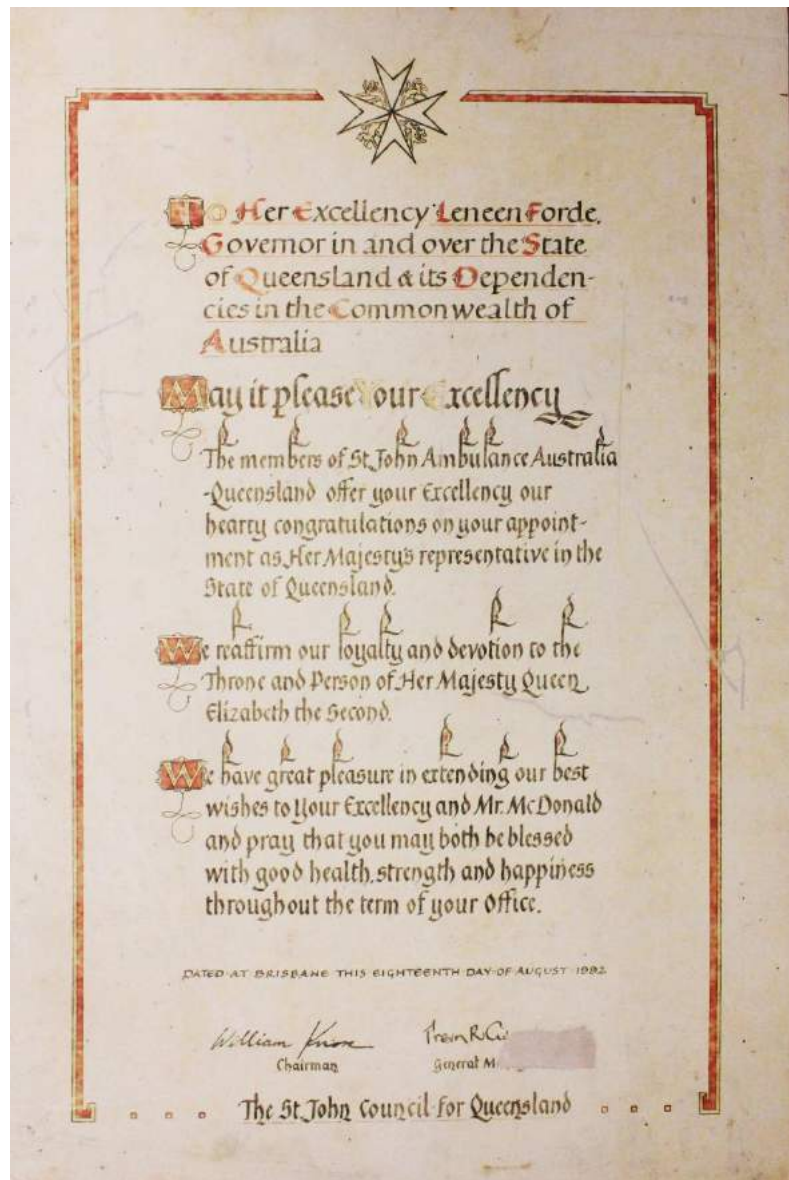 To Her Excellency Leneen Forde,
Governor in and over the State
of Queensland & its Dependen-
cies in the Commonwealth of
Australia
May it please Your Excellency
The members of St. John Ambulance Australia
-Queensland offer your Excellency our
hearty congratulations on your appoint-
ment as Her Majesty's representative in the
State of Queensland.
We reaffirm our loyalty and devotion to the
Throne and Person of Her Majesty Queen
Elizabeth the Second.
We have great pleasure in extending our best
wishes to Your Excellency and Mr. McDonald
and pray that you may both be blessed
with good health, strength and happiness
throughout the term of your Office.
DATED AT BRISBANE THIS EIGHTEENTH DAY OF AUGUST 1992
William Knox
Chairman General
The St. John Council for Queensland